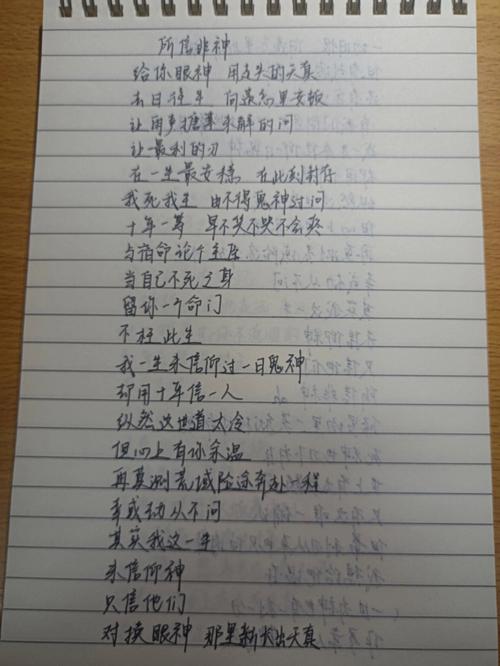 所信非神
给你眼神 用走失的天真
去日往生 向遗忘里安顿
让用
未解的问
让最利的刃
在一生最安稳 在此刻封存
我死我生 由不得鬼神对问
十年一梦 早不哭不哭不会疼
与宿命论个主序
当自己不死之身
留你一个命门
不枉此生
我一生未信仰过一日鬼神
却用十年信一人
纵然这世道太冷
但心上有你余温
再莫测荒域险途奔赴一程
幸或劫从不问
其实我这一生
未信仰神
只信他们
对换眼神 那里新长出天真